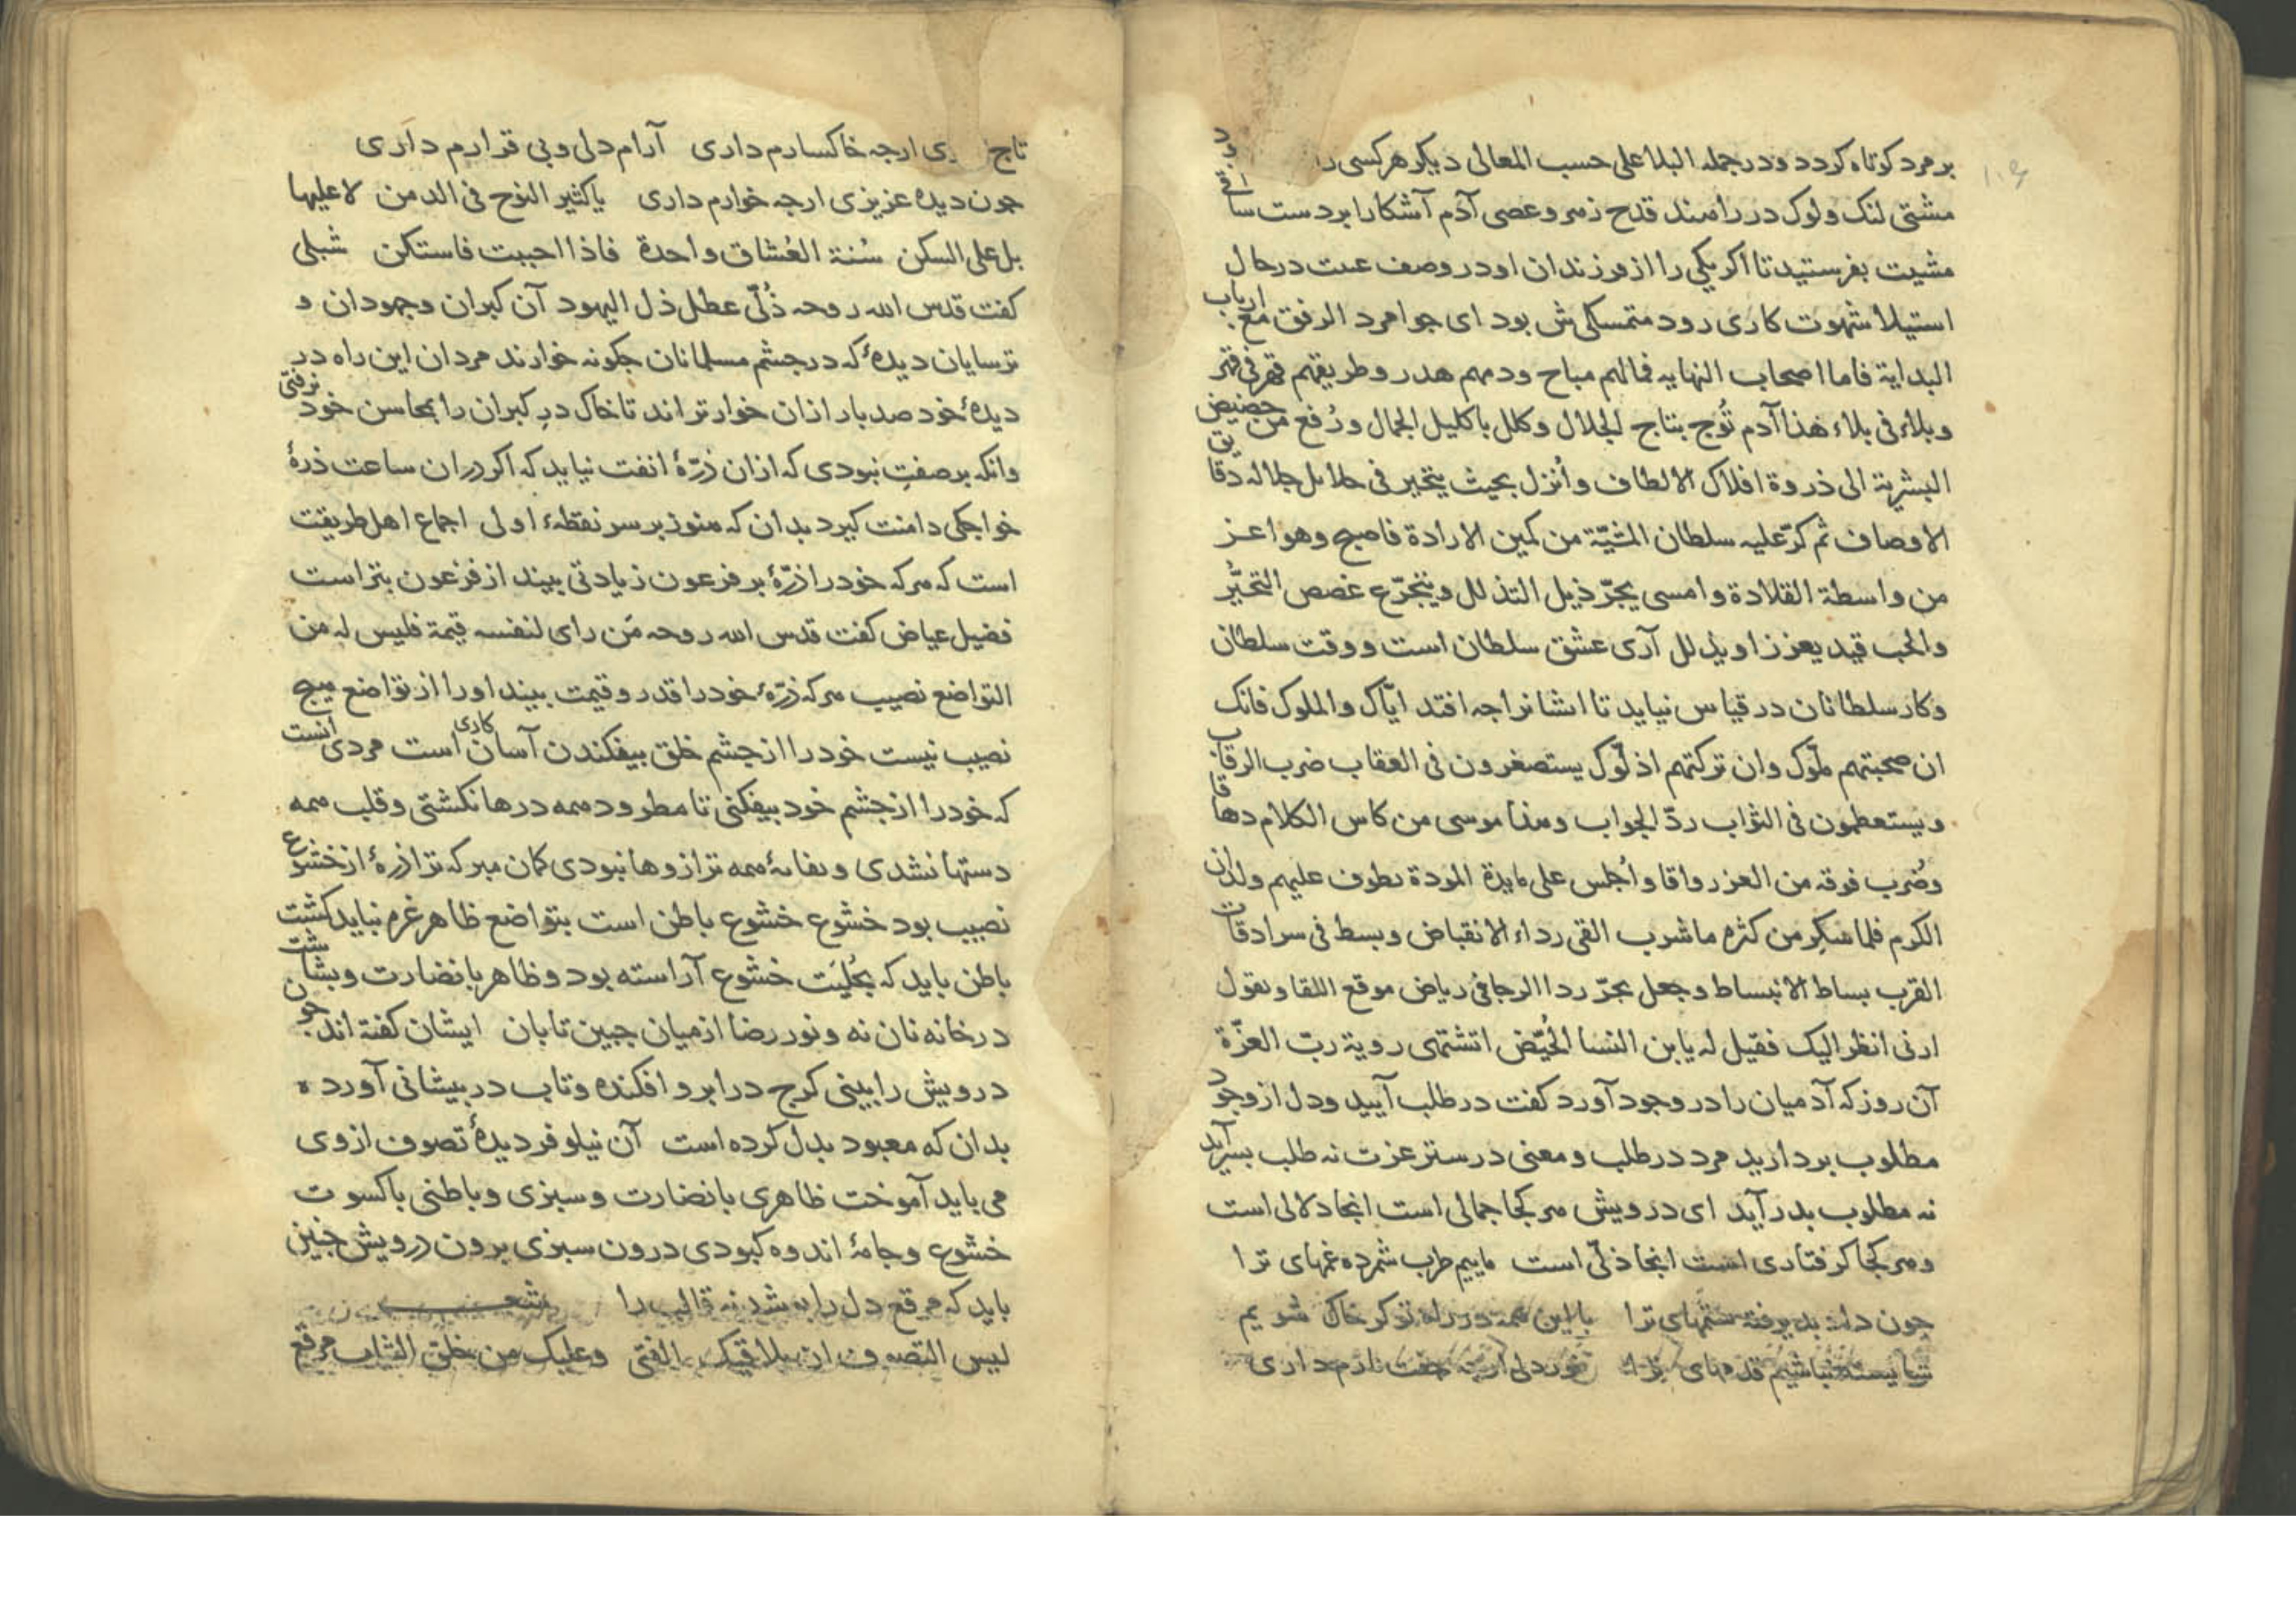 بر مرد کوتاه کردد ودر جمله البلا علی حسب المعالی دیکر هر کسی را
مشتی لنک ولوک در راهند قدح زهر وعصی آدم آشکارا بر دست ساقی
مشیت بفرستید تا اکر یکی را از فرزندان او در وصف در حال
استیلا شهوت کاری رود متمسکی ش بود ای جوامرد الرفق مع ارباب
البدایة فاما اصحاب النهایه فمالهم مباح ودمهم هدر وطریقهم قهر فی قهر
وبلاء فی بلاء هذا آدم تُوج بتاج الجلال وکلل باکلیل الجمال ورُفع من حضیض
البشریة الی ذروة افلاک الالطاف وأنزل بحیث یتحیر فی جلاله دقایق
الاوصاف ثم کرّ علیه سلطان المشیّة من کمین الارادة فاصبح وهو اعز
من واسطة القلادة وامسی یجرّ ذیل التذلل ویتجرّع غصص التحیُّر
والحب قید یعزز او یذلل آری عشق سلطان است ووقت سلطان
وکار سلطانان در قیاس نیاید تا ایشانرا جه افتد ایّاک والملوک فانک
ان صحبتهم ملّوک وان ترکتهم اذلّوک یستصغرون فی العقاب ضرب الرقاب
ویستعظمون فی الثواب ردّ الجواب وهذا موسی من کاس الکلام دهاقا
وضُرب فوقه من العز رواقا واُجلس علی مایدة المودة یطوف علیهم ولدان
الکرم فلما سکِر من کثره ما شرب القی رداء الانقباض وبسط فی سرادقات
القرب بساط الانبساط وجعل یجرّ ردا الرجا فی ریاض موقع اللقا ویقول
ارنی انظر الیک فقیل له یا بن النسا الحُیّض اتشتهی رویة ربّ العزّة
آن روز که آدمیان را در وجود آورد کفت در طلب آیید ودل از وجود
مطلوب بردارید مرد در طلب ومعنی در ستر عزت نه طلب بسر آید
نه مطلوب بدر آید ای درویش هر کجا جمالی است انجا دلالی است
وهر کجا کرفتاری است انجا ذلّی است ماییم طرب شمرده غمهای ترا
جون داد بدیرفته ستمهای ترا با این همه در راه تو کر خاک شویم
شایسته نباشیم قدمهای ترا نور دلی ارجه جفت نارم داری
تاج سری ارجه خاکسارم داری آرام دلی وبی قرارم داری
جون دیده عزیزی ارجه خوارم داری یا کثیر النوح فی الدمن لا علیها
بل علی السکن سُنة العُشاق واحدة فاذا احببت فاستکن شبلی
کفت قدس الله روحه ذُلّی عطل ذل الیهود آن کبران وجهودان و
ترسایان دیدهٔ که در جشم مسلمانان جکونه خوارند مردان این راه در
دیدهٔ خود صد بار ازان خوارتراند تا خاک در کبران را بمحاسن خود نرفتی
وانکه بر صفتِ نبودی که ازان ذرّهٔ انفت نیاید که اکر دران ساعت ذرهٔ
خواجکی دامنت کیرد بدان که هنوز بر سر نقطهٔ اولی اجماع اهل طریقت
است که هر که خود را ذرّهٔ بر فرعون زیادتی بیند از فرعون بتر است
فضیل عیاض کفت قدس الله روحه مَن رای لنفسه قیمة فلیس له من
التواضع نصیب هر که ذرّهٔ خود را قدر وقیمت بیند او را از تواضع هیج
نصیب نیست خود را از جشم خلق بیفکندن آسان کاری است مردی انست
که خود را از جشم خود بیفکنی تا مطرود همه درها نکشتی وقلب همه
دستها نشدی ونفایهٔ همه ترازوها نبودی کمان مبر که ترا ذرهٔ از خشوع
نصیب بود خشوع خشوع باطن است بتواضع ظاهر غره نباید کشت
باطن باید که بحُلیَت خشوع آراسته بود وظاهر با نضارت وبشاشت
در خانه نان نه ونور رضا از میان جبین تابان ایشان کفته اند جون
درویش را بینی کرج در ابرو افکنده وتاب در بیشانی آورده
بدان که معبود بدل کرده است آن نیلوفر دیدهٔ تصوف از وی
می باید آموخت ظاهری با نضارت وسبزی وباطنی با کسوت
خشوع وجامهٔ اندوه کبودی درون سبزی برون درویش جنین
باید که مرقع دل را بوشد نه قالب را شعـــر
لیس التصوف ان یلاقیک الفتی وعلیک من خلق الثیاب مرقع